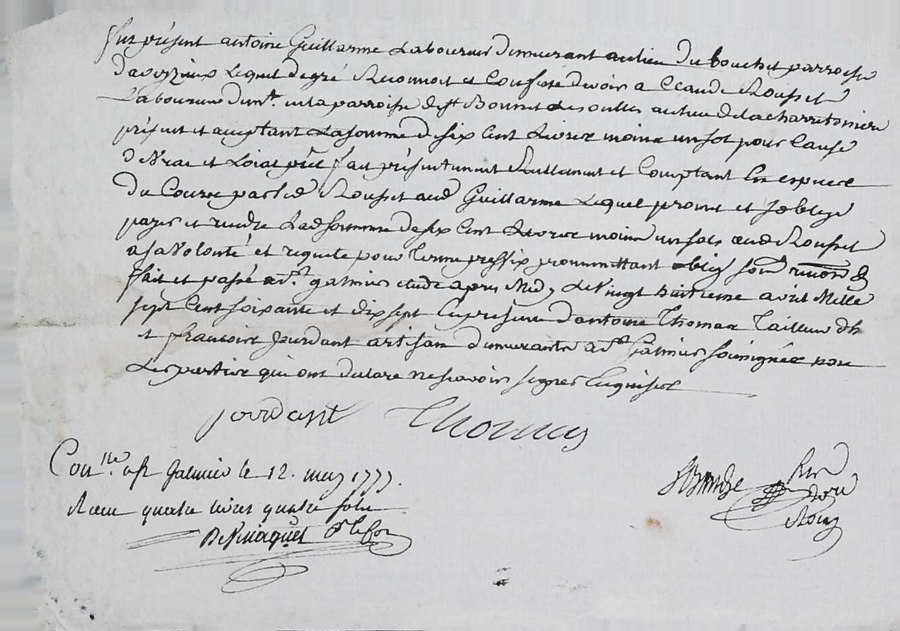 fut présent antoine Guillarme Laboureur demeurant aulieu du bouchet parroisse
daveizieux Lequel degré Reconnoit et Confesse devoir a Claude Rousset
Laboureur dem.t en la parroisse de st Bonnet Les oulles aulieu de la charretonniere
présent et aceptant La somme de six Cent Livres moins un sol pour Cause
de vrai et Loial prêt fait présentement Reellement et Comptant En espece
du Cours par led Rousset aud Guillarme Lequel promet et soblige
payer et rendre Lad somme de six Cent Livres moins un sols aud Rousset
a sa volonté et requete pour terme preffix promettant oblig soum renon &
fait et passé a st galmier etude apres Midy Le vingt huitieme avril Mille
sept Cent soixante et dix sept En presence dantoine Thomas Tailleur dh
et francois Jourdant artisan demeurants a st Galmier soussignés non
Les parties qui ont declaré ne scavoir signer Enquises
jourdant Thomas
Con.lé a st Galmier le 12 may 1777
Reçu quatre livres quatre sols